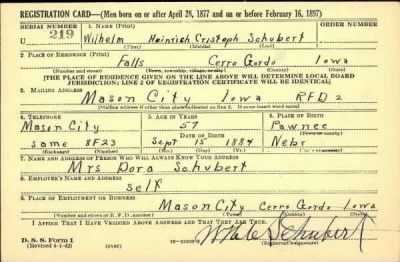 REGISTRATION CARD—(Men born on or after April 28, 1877 and on or before February 16, 1897)
SERIAL NUMBER 1. NAME (Print) ORDER NUMBER
U 219 Wilhelm Heinrich Cristoph Schubert
(First) (Middle) (Last)
2. PLACE OF RESIDENCE (Print)
Falls Cerro Gordo Iowa
(Number and street) (Town, township, village, or city) (County) (State)
[THE PLACE OF RESIDENCE GIVEN ON THE LINE ABOVE WILL DETERMINE LOCAL BOARD
JURISDICTION; LINE 2 OF REGISTRATION CERTIFICATE WILL BE IDENTICAL]
3. MAILING ADDRESS
Mason City Iowa RFD 2
(Mailing address if other than place indicated on line 2. If same insert word same)
4. TELEPHONE 5. AGE IN YEARS 6. PLACE OF BIRTH
Mason City 57 Pawnee
DATE OF BIRTH (Town or county)
same 8F23 Sept 15 1884 Nebr
(Exchange) (Number) (Mo.) (Day) (Yr.) (State or country)
7. NAME AND ADDRESS OF PERSON WHO WILL ALWAYS KNOW YOUR ADDRESS
Mrs Dora Schubert
8. EMPLOYER'S NAME AND ADDRESS
Self
9. PLACE OF EMPLOYMENT OR BUSINESS
Mason City Cerro Gordo Iowa
(Number and street or R. F. D. number) (Town) (County) (State)
I AFFIRM THAT I HAVE VERIFIED ABOVE ANSWERS AND THAT THEY ARE TRUE.
D. S. S. Form 1
(Revised 4-1-42) (over) Schubert
(Registrant's signature)